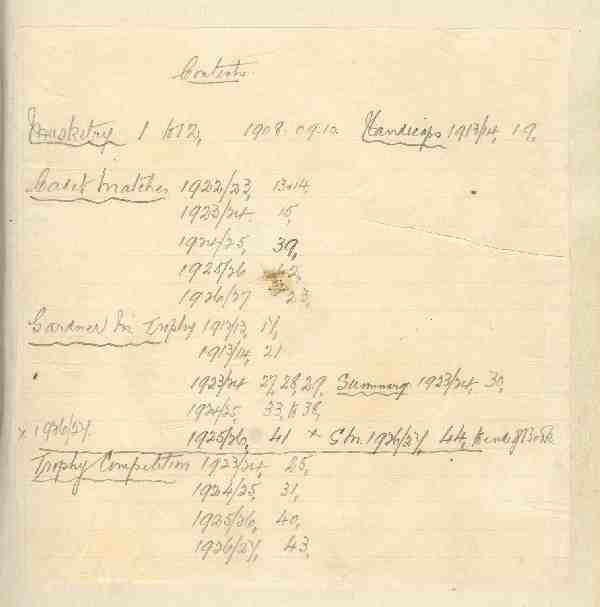 Contents.
Musketry 1 to 12, 1908. 09. 10. Handicaps 1913/14, 19,
Cadet Matches 1922/23, 13 & 14.
1923/24. 15,
1924/25, 39,
1925/26 42,
1926/27 23,
Gardner Trophy 1912/13, 17,
1913/14, 21
1923/24 27, 28, 29, Summary 1923/24, 30,
1924/25 33, to 38,
x 1926/27. 1925/26, 41 x 1926/27, 44, to end of Book
Trophy Competition 1923/24, 25,
1924/25, 31,
1925/26, 40,
1926/27, 43,